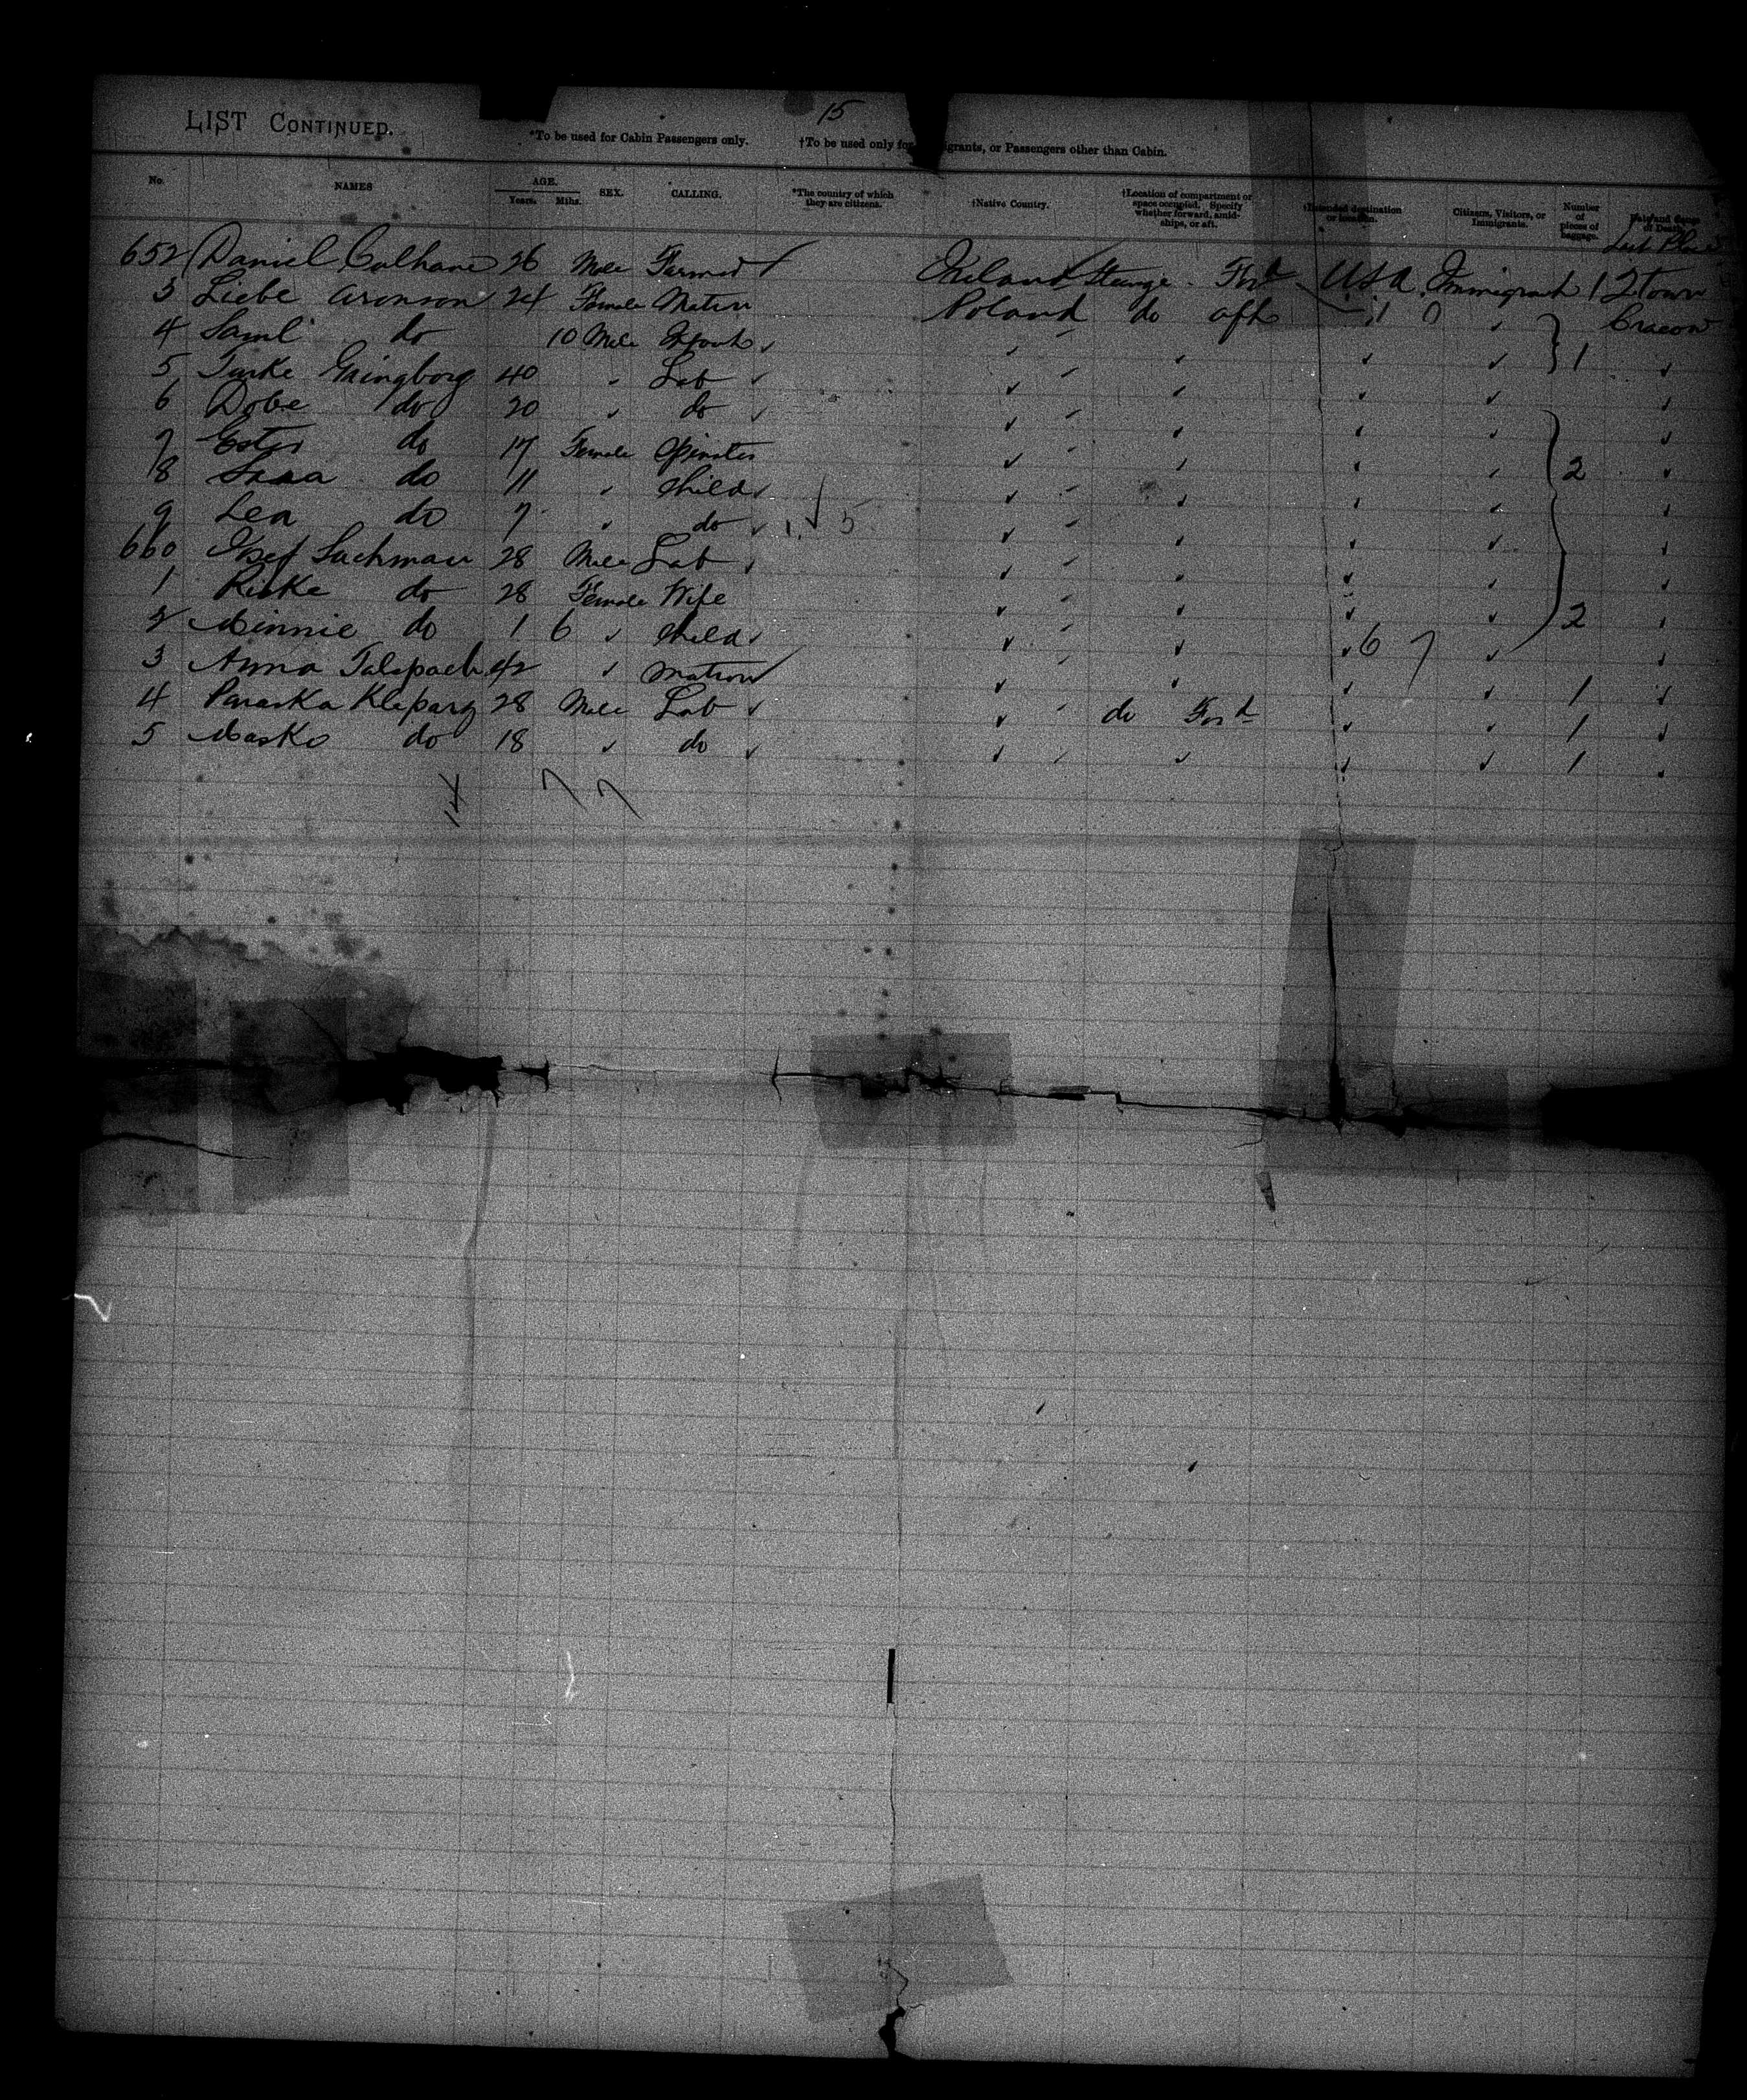 15
LIST CONTINUED.
*To be used for Cabin Passengers only. †To be used only for igrants, or Passengers other than Cabin.
No. NAMES AGE. Years. Mths. SEX. CALLING. *The country of which they are citizens. †Native Country. †Location of compartment or space occupied. Specify whether forward, amidships, or aft. †Intended destination or location. Citizens, Visitors, or Immigrants. Number of pieces of baggage. Date and Cause of Death.
652 Daniel Culhane 26 Male Farmer Ireland Steerage Ford USA Immigrant 1
3 Liebe Aronson 24 Female Matron Poland do aft 1 0 Cracow
4 Saml do 10 Male Infant 1
5 40 Lab
6 Dobe do 20 do
7 Ester do 17 Female Spinster 2
8 do 11 Child
9 Lea do 7 do 5
660 Josef Lachman 28 Male Lab
1 Riske do 28 Female Wife
2 Minnie do 1 6 Child 6 7 2
3 Anna 42 Matron 1
4 Paraska 28 Male Lab do Ford 1
5 Masko do 18 do 1
14 7 7